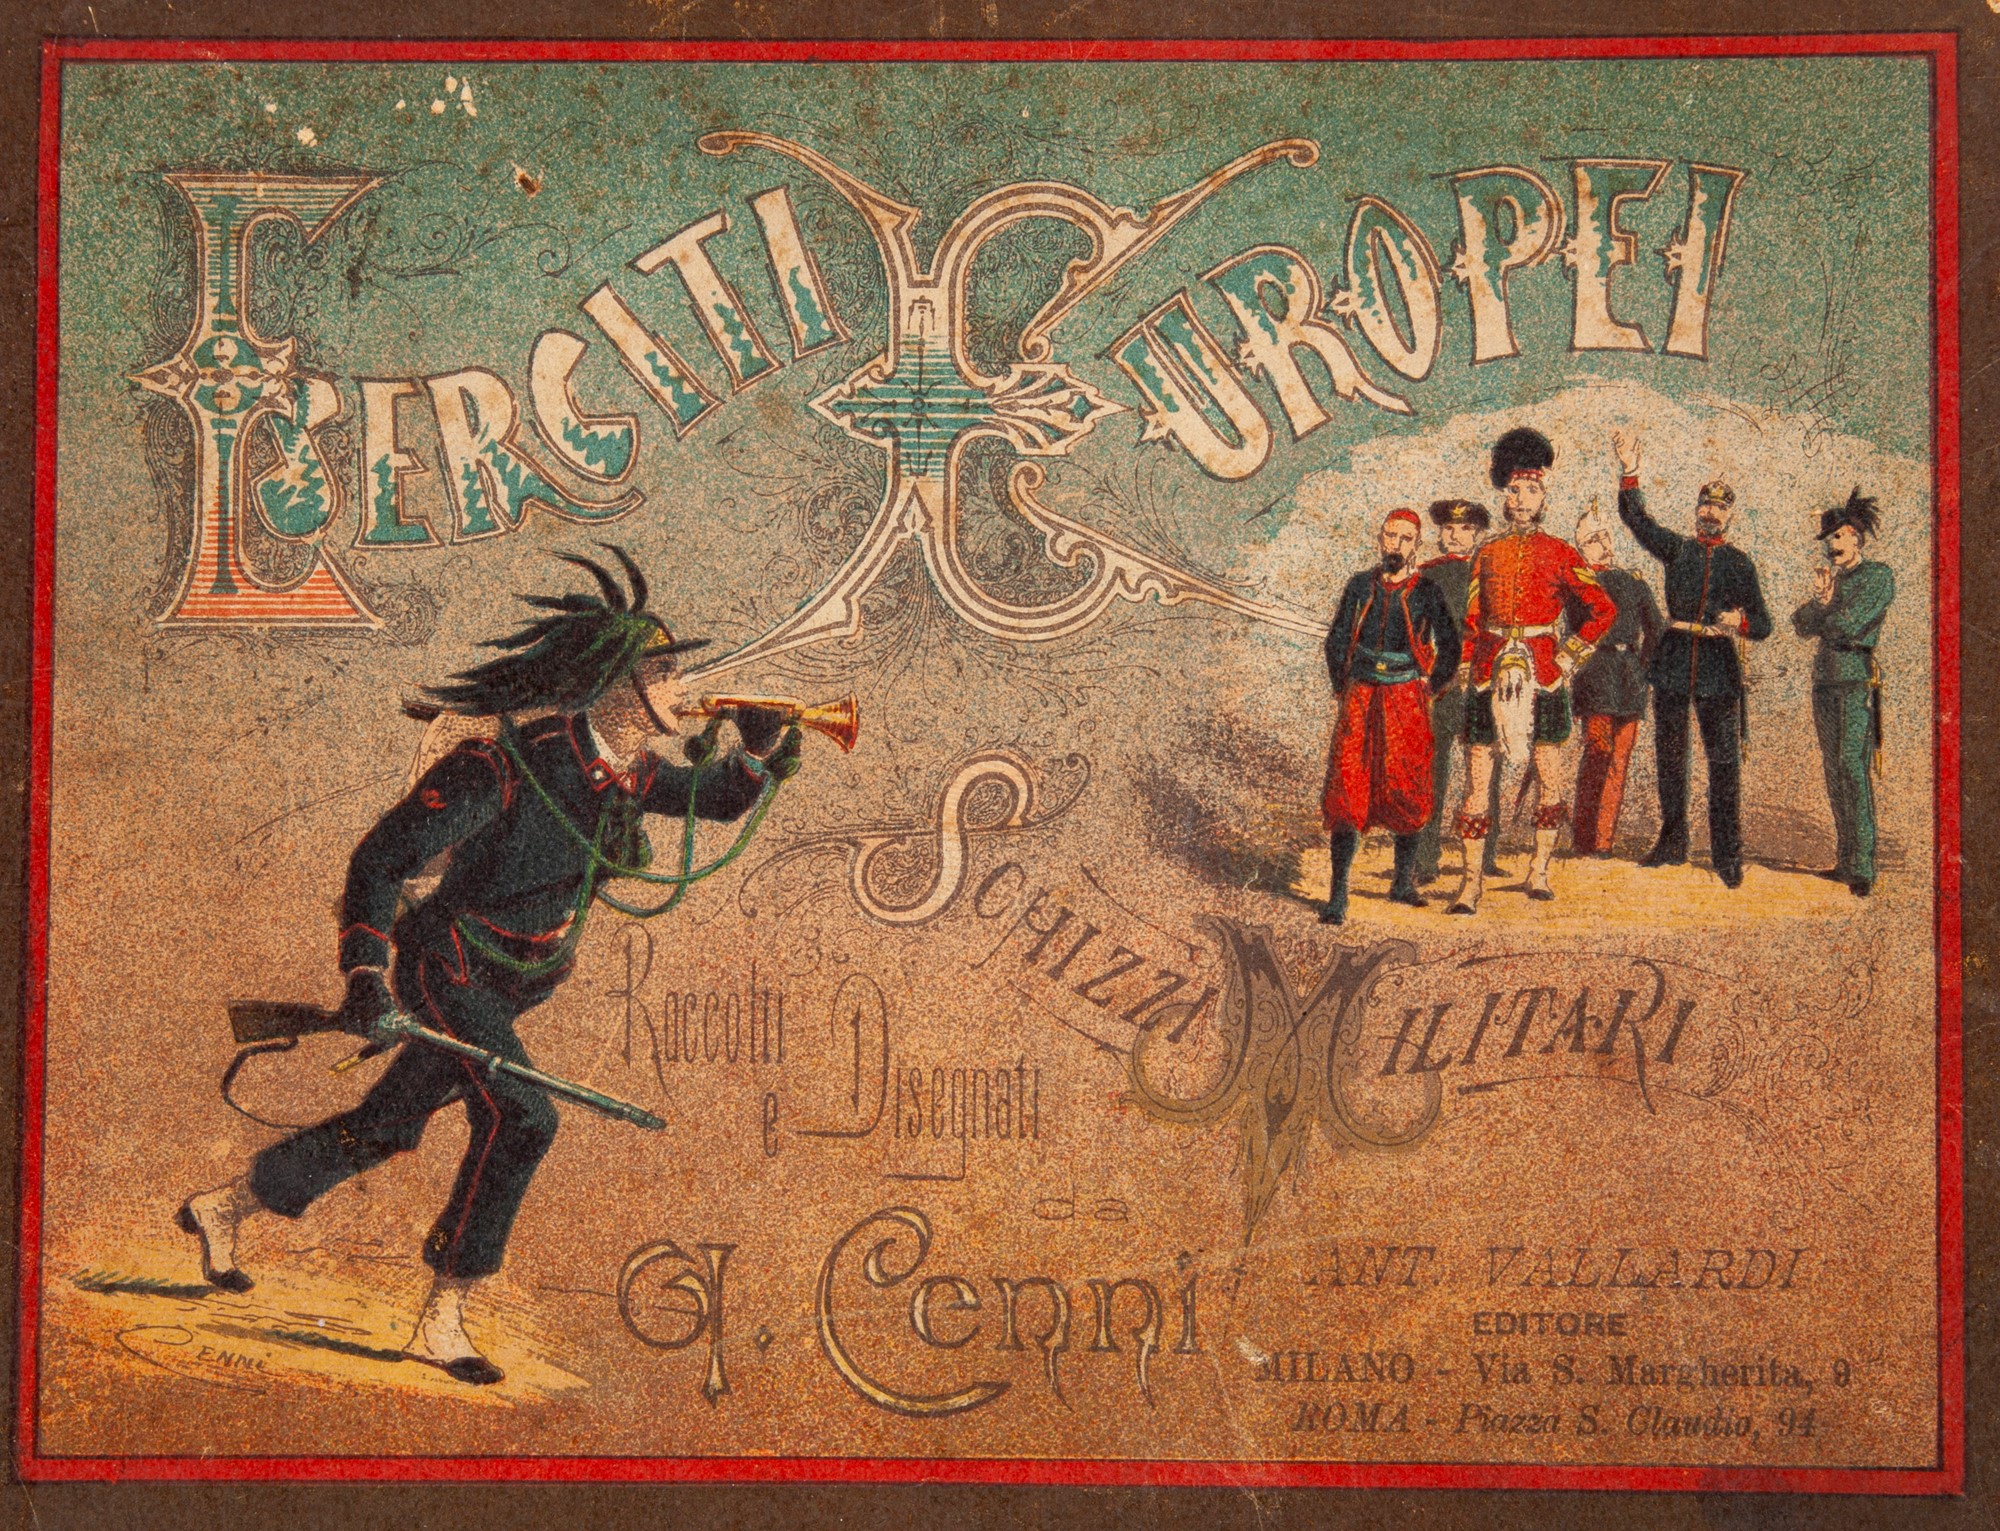 ESERCITI EUROPEI
SCHIZZI MILITARI
Raccolti
e Disegnati
da
G. Cenni
ANT. VALLARDI
EDITORE
MILANO - Via S. Margherita, 9
ROMA - Piazza S. Claudio, 94
CENNI